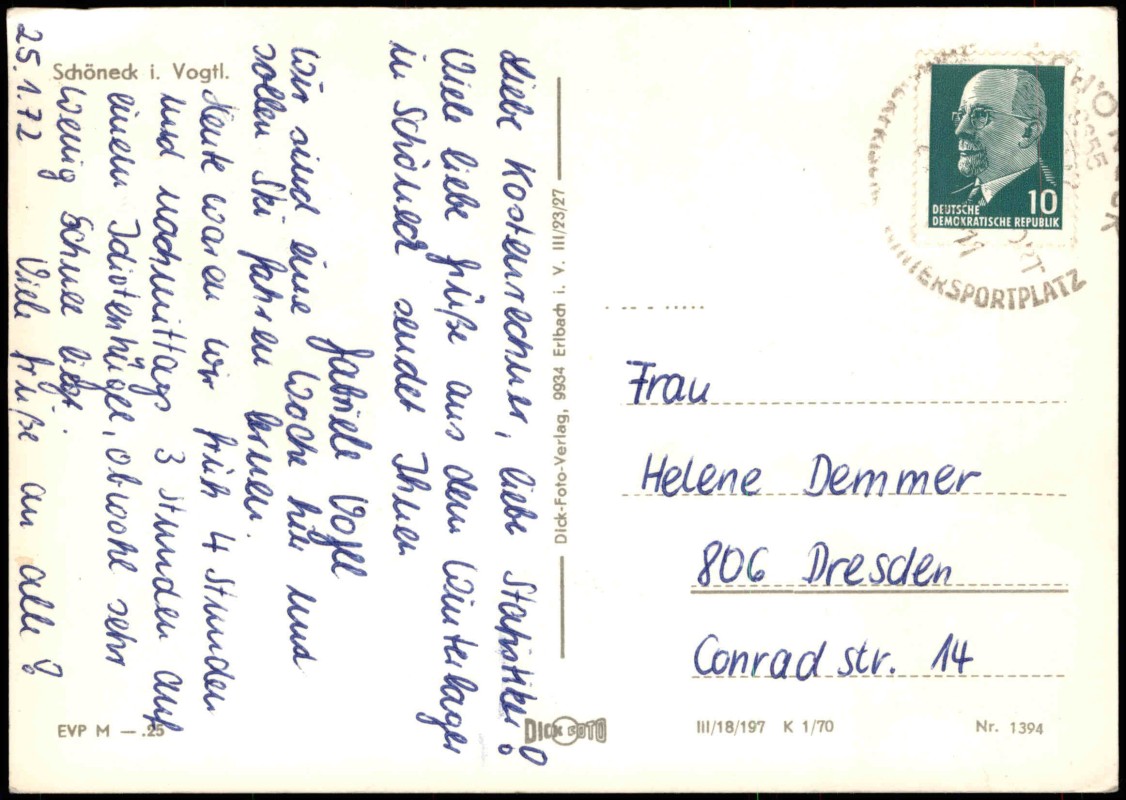 Schöneck i. Vogtl.
Liebe Kostenrechner, liebe Statistiker!
Viele liebe Grüße aus dem Winterlager
in Schöneck sendet Ihnen
Gabriele Vogel
Wir sind eine Woche hier und
sollen Ski fahren lernen.
Heute waren wir früh 4 Stunden
und nachmittags 3 Stunden auf
einem Idiotenhügel, obwohl sehr
wenig Schnee liegt.
Viele Grüße an alle!
25.1.72
EVP M — .25
Dick-Foto-Verlag, 9934 Erlbach i. V. III/23/27
DICK FOTO
10
DEUTSCHE
DEMOKRATISCHE REPUBLIK
WINTERSPORTPLATZ
Frau
Helene Demmer
806 Dresden
Conradstr. 14
III/18/197 K 1/70
Nr. 1394